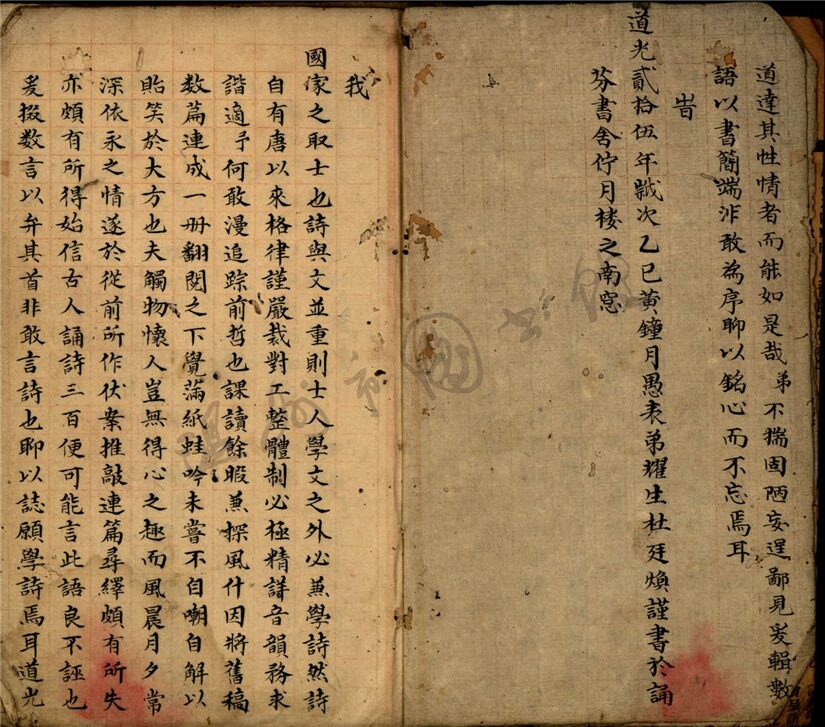 道達其性情者而能如是哉弟不揣固陋妄逞鄙見爰輯數
語以書簡端非敢為序聊以銘心而不忘焉耳
旹
道光貳拾伍年歲次乙巳黃鐘月愚表弟耀生杜廷煥謹書於誦
芬書舍佇月楼之南窓
我
國家之取士也詩與文並重則士人學文之外必兼學詩然詩
自有唐以來格律謹嚴裁對工整體制必極精詳音韻務求
諧適予何敢漫追踪前哲也課讀餘暇兼探風什因將舊稿
数篇連成一册翻閱之下覺滿紙蛙吟未嘗不自嘲自解以
貽笑於大方也夫觸物懷人豈無得心之趣而風晨月夕常
深依永之情遂於從前所作伏案推敲連篇尋繹頗有所失
亦頗有所得始信古人誦詩三百便可能言此語良不誣也
爰掇数言以弁其首非敢言詩也聊以誌願學詩焉耳道光